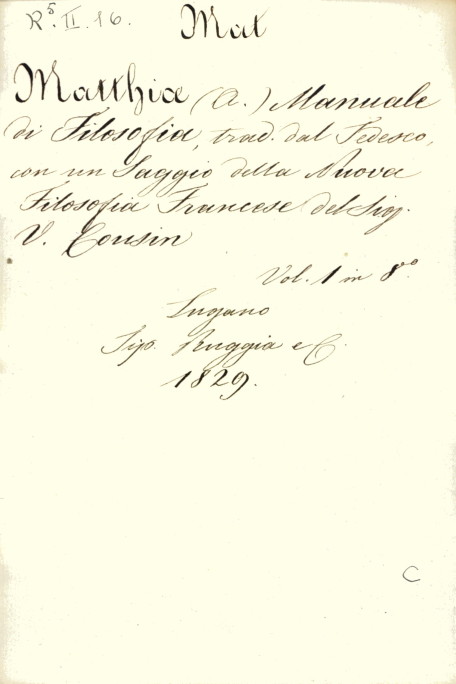 R⁵. II. 16.
Mat
Matthiæ (A.) Manuale
di Filosofia, trad. dal Tedesco,
con un Saggio della Nuova
Filosofia Francese del Sig.
V. Cousin
Vol. 1 in 8.°
Lugano
Tip. Ruggia e C.
1829.
C